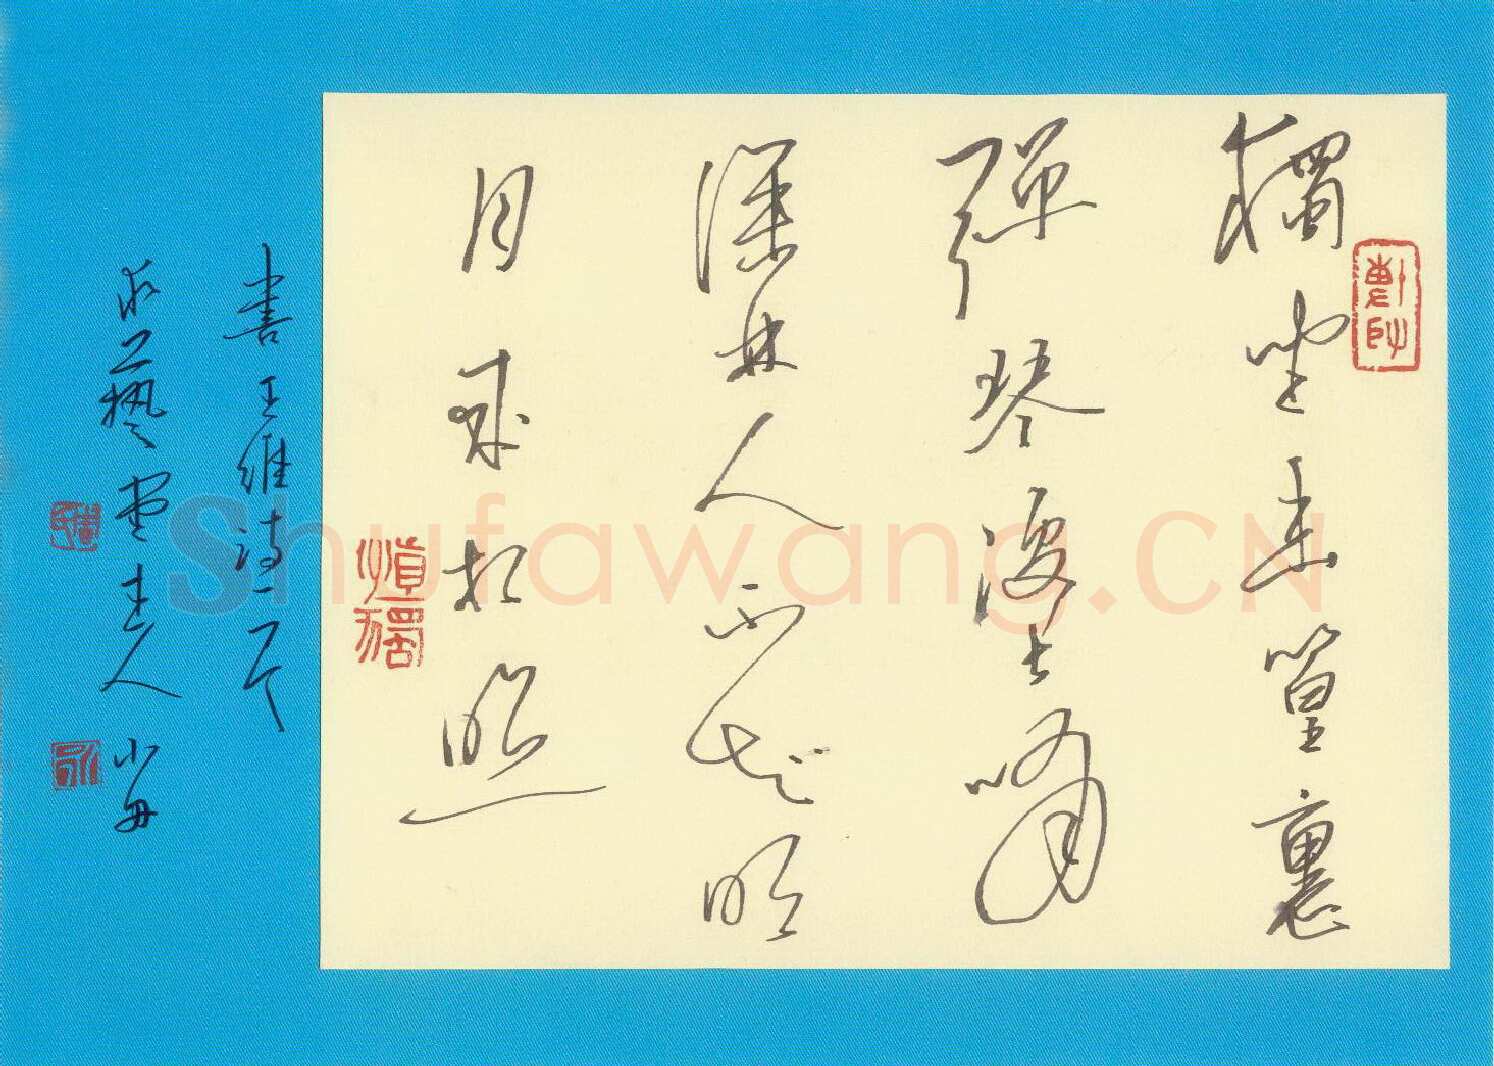 獨坐幽篁裏
彈琴復長嘯
深林人不知明
月來相照
慎獨
書王維詩一首
藝堂主人
Shufawang.CN